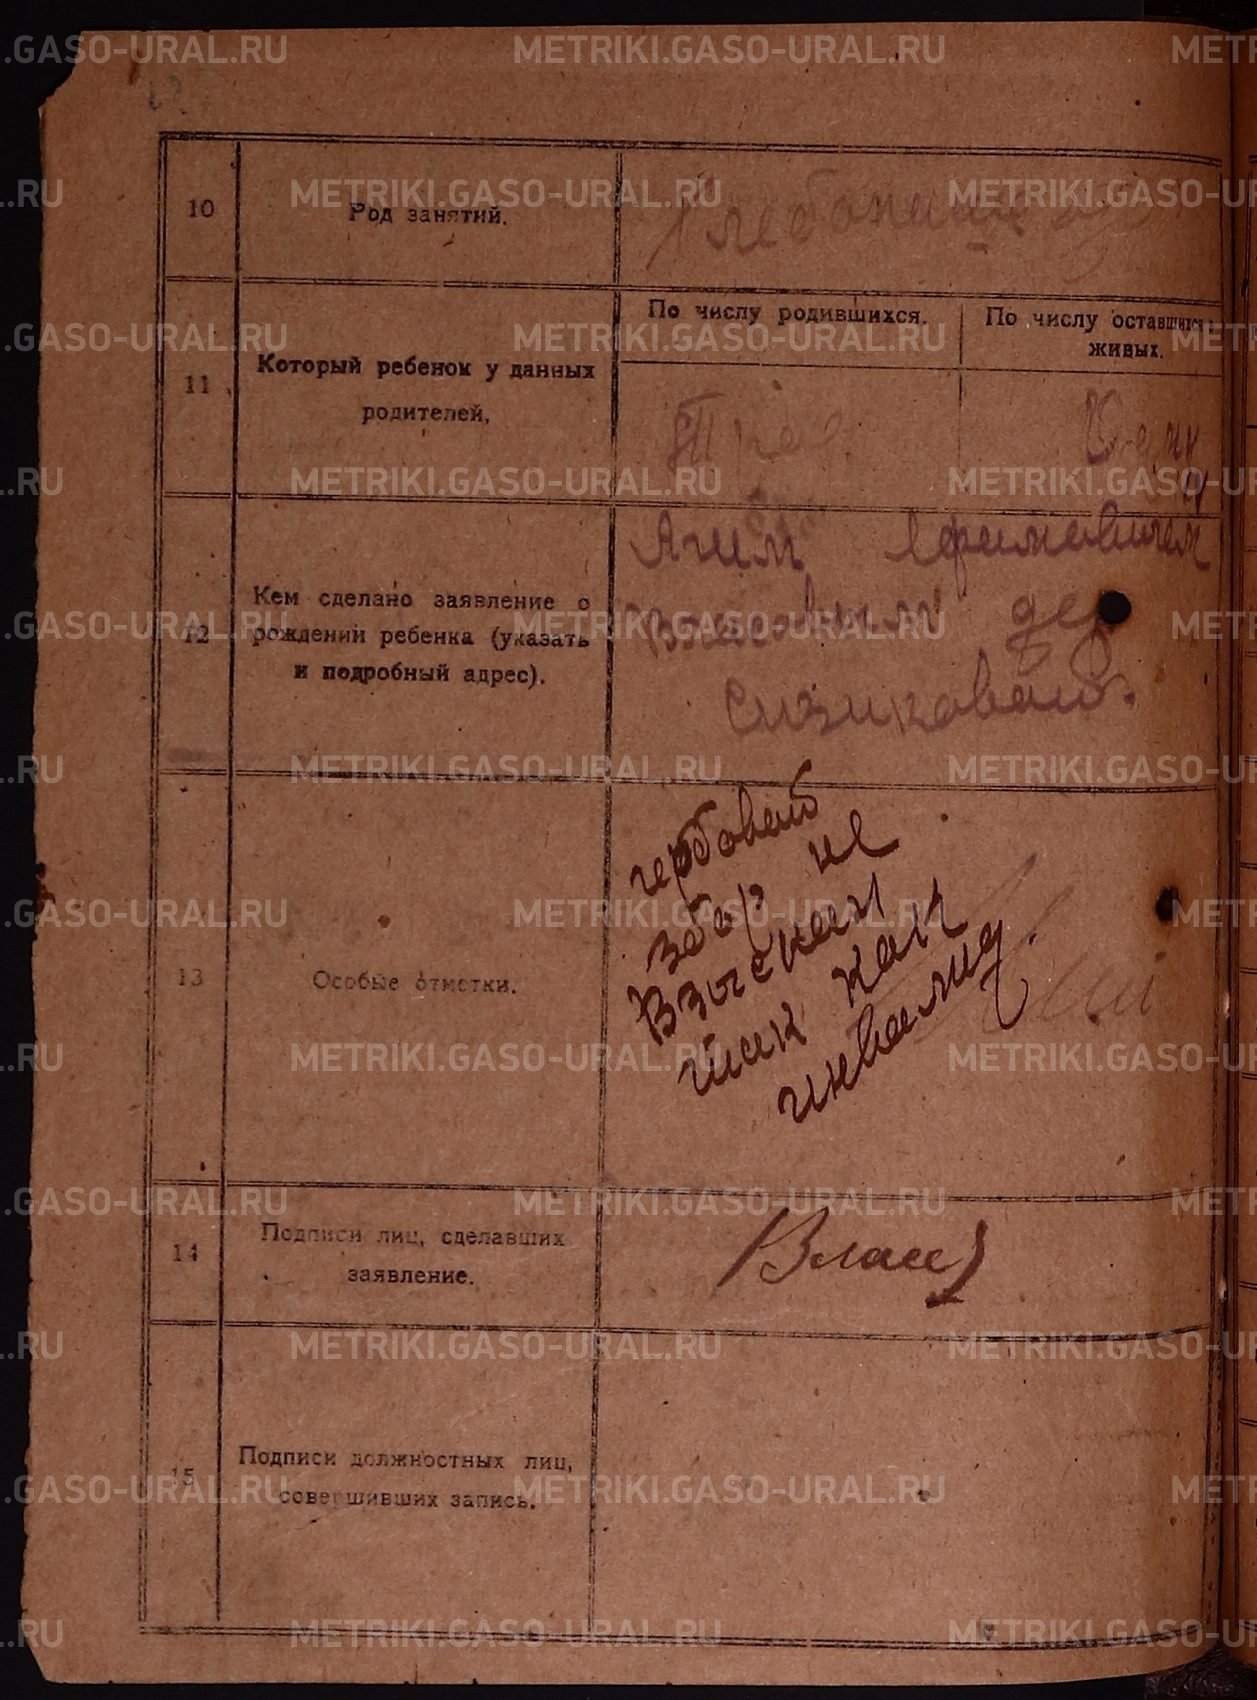 10
Род занятий.
Хлебопашец
11
Который ребенок у данных
родителей,
По числу родившихся.
По числу оставшихся
живых.
Один
12
Кем сделано заявление о
рождении ребенка (указать
и подробный адрес).
Ефимовичем
Власовым дер
Сизиковой.
13
Особые отметки.
гербовой
збор не
Взыскан
так как
инвалид
14
Подписи лиц, сделавших
заявление.
Власов
15
Подписи должностных лиц,
совершивших запись.
METRIKI.GASO-URAL.RU